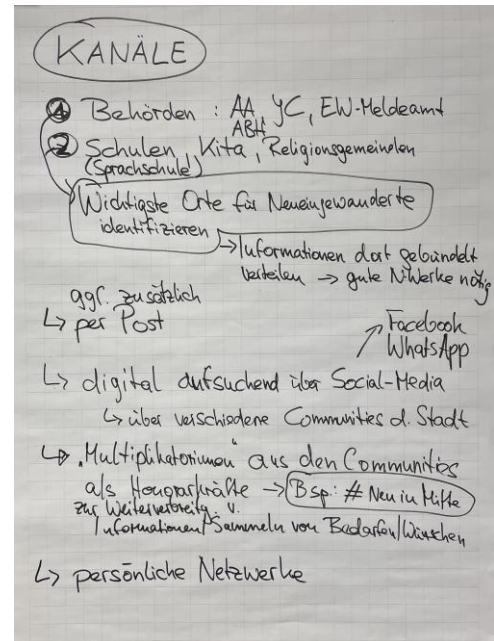 KANÄLE
① Behörden : AA, JC, EW-Meldeamt
ABH
② Schulen, Kita, Religionsgemeinden
(Sprachschule)
Wichtigste Orte für Neueingewanderte
identifizieren
↳ Informationen dort gebündelt
verteilen → gute N'Werke nötig
ggf. zusätzlich
↳ per Post
Facebook
WhatsApp
↳ digital aufsuchend über Social-Media
↳ über verschiedene Communities d. Stadt
↳ "Multiplikatorinnen" aus den Communities
als Honorarkräfte → Bsp: # Neu in Mitte
zur Weiterverbreitg. v.
Informationen/Sammeln von Bedarfen/Wünschen
↳ persönliche Netzwerke